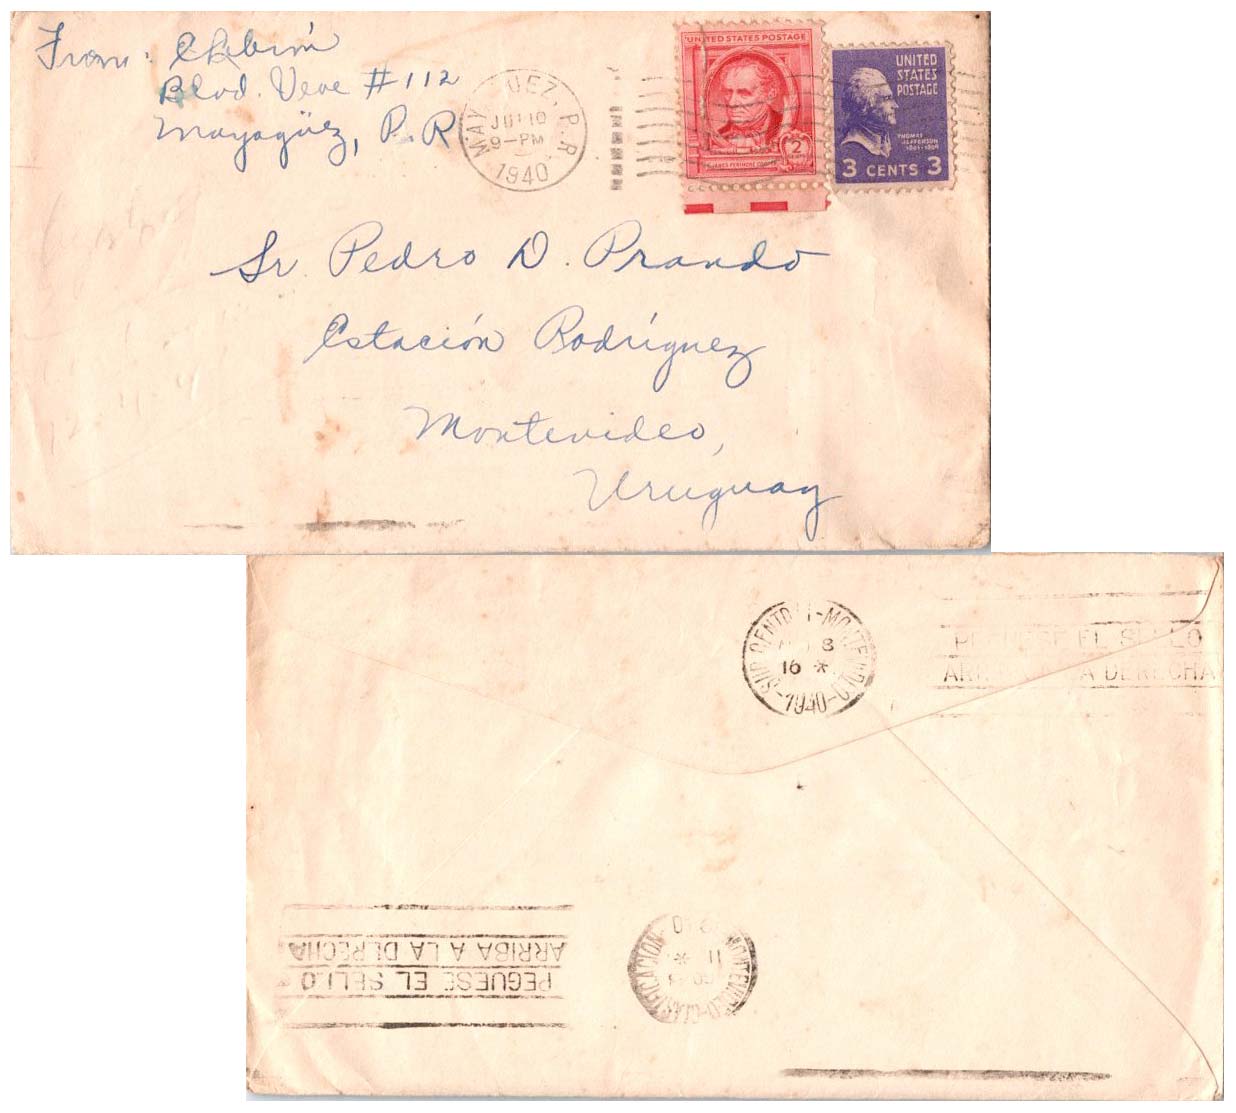 From:
Blvd. Veve #112
Mayagüez, P. R.
MAYAGUEZ, P.R.
JUL 10
9-PM
1940
UNITED STATES POSTAGE
2
CENTS
JAMES FENIMORE COOPER
UNITED
STATES
POSTAGE
THOMAS
JEFFERSON
1801-1809
3 CENTS 3
Sr. Pedro D. Prando
Estación Rodríguez
Montevideo,
Uruguay
SUR CENTRAL-MONTEVIDEO
8
16 *
-1940-
PEGUESE EL SELLO
ARRIBA A LA DERECHA
PEGUESE EL SELLO
ARRIBA A LA DERECHA
MONTEVIDEO-CLASIFICACION
11 *